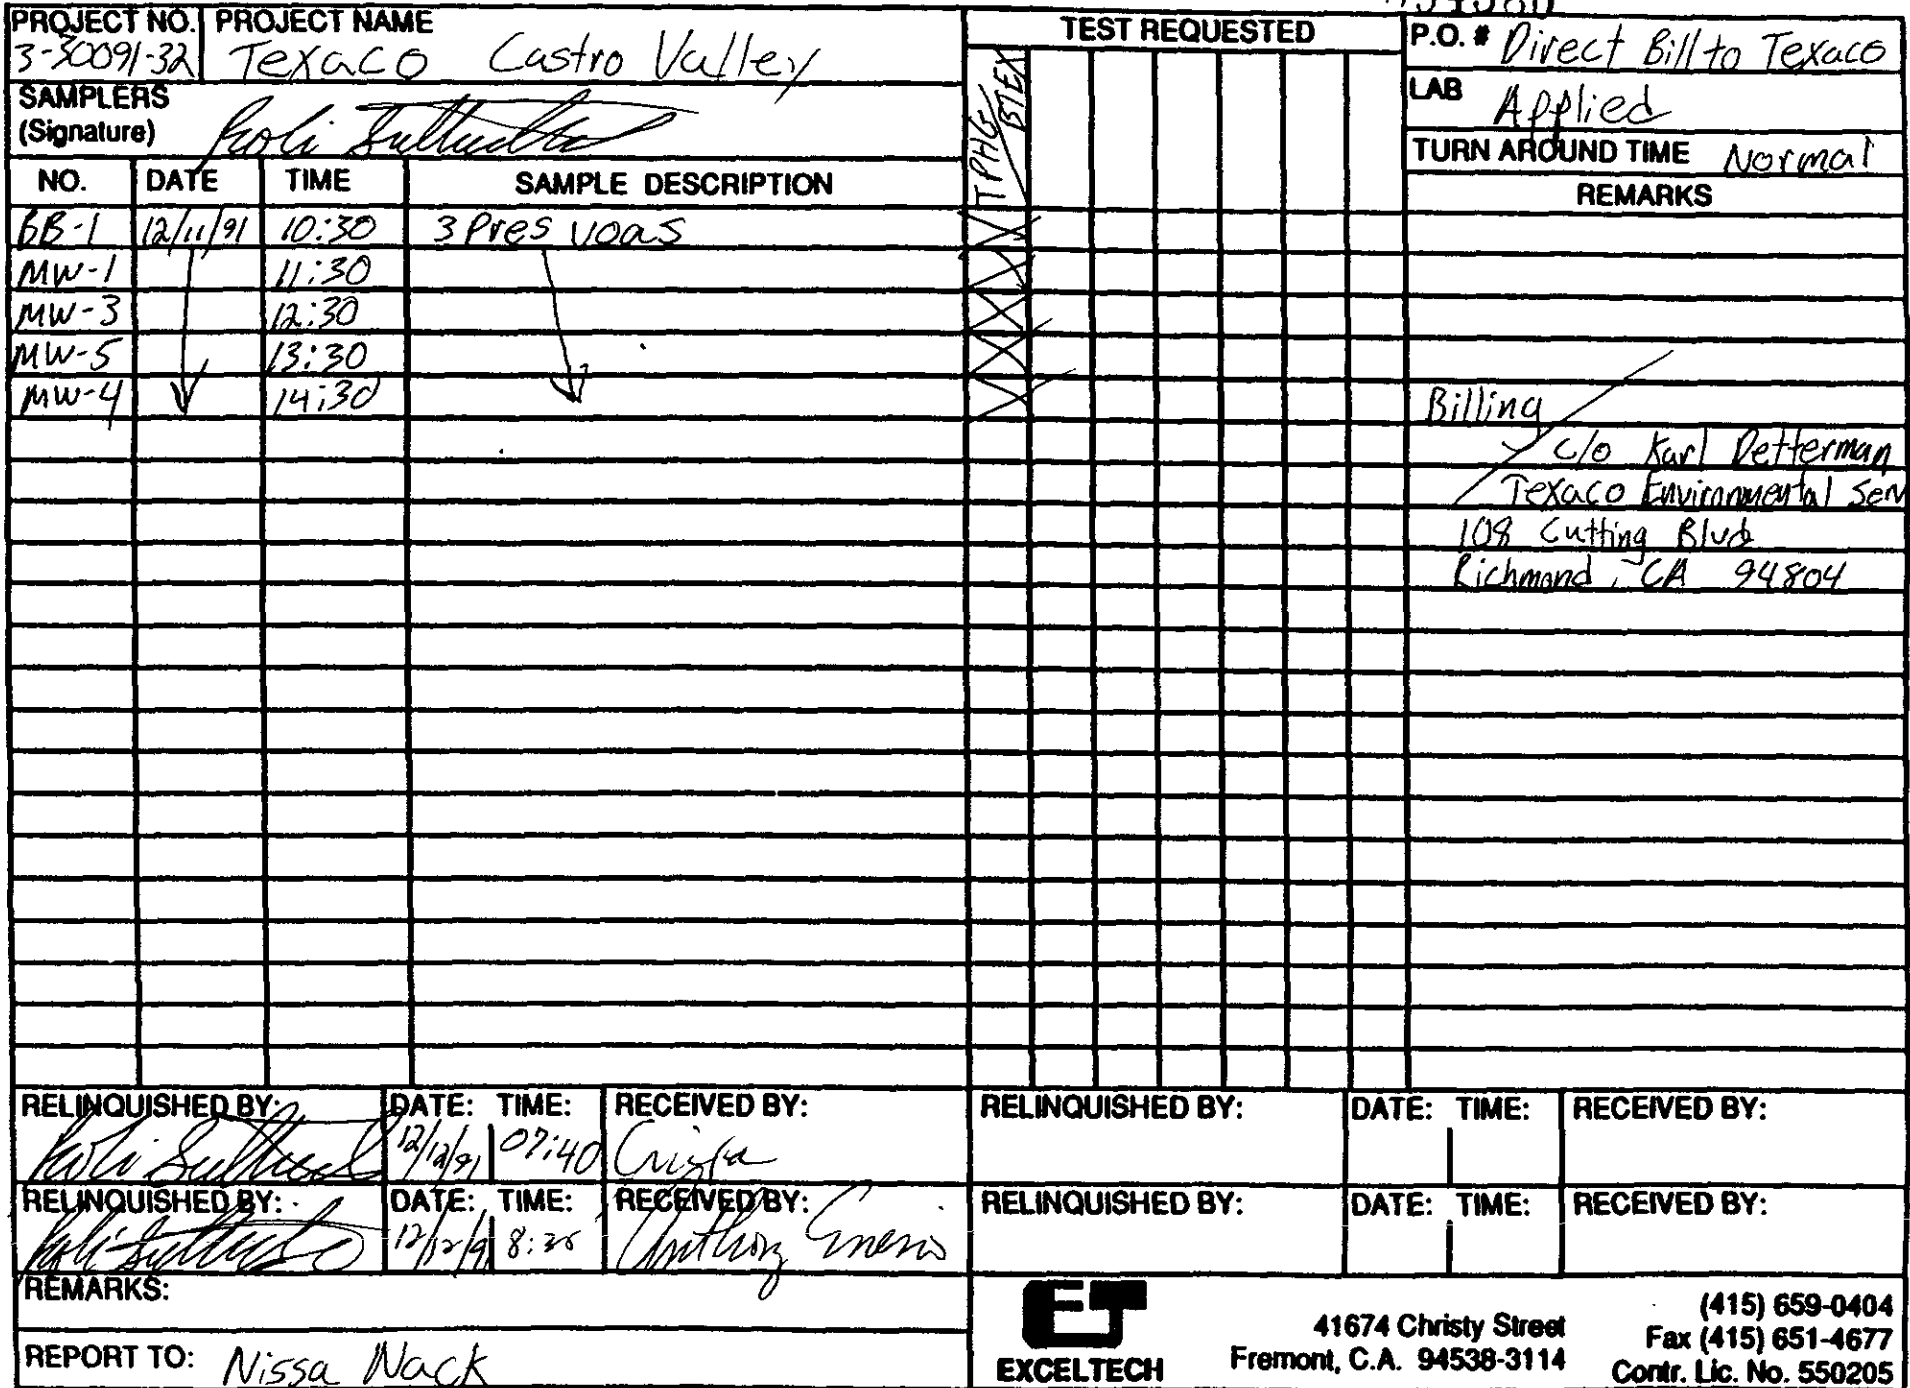 PROJECT NO. PROJECT NAME
3-30091-32 Texaco Castro Valley
SAMPLERS
(Signature)
TEST REQUESTED
TPHG/BTEX
P.O. # Direct Bill to Texaco
LAB Applied
TURN AROUND TIME Normal
NO. DATE TIME SAMPLE DESCRIPTION REMARKS
BB-1 12/11/91 10:30 3 Pres voas
MW-1 11:30
MW-3 12:30
MW-5 13:30
MW-4 14:30
Billing
c/o Karl Detterman
Texaco Environmental Serv
108 Cutting Blvd
Richmond, CA 94804
RELINQUISHED BY: DATE: TIME: RECEIVED BY: RELINQUISHED BY: DATE: TIME: RECEIVED BY:
12/12/91 07:40
RELINQUISHED BY: DATE: TIME: RECEIVED BY: RELINQUISHED BY: DATE: TIME: RECEIVED BY:
12/12/91 Anthony
REMARKS:
REPORT TO: Nissa Nack
ET
EXCELTECH
41674 Christy Street
Fremont, C.A. 94538-3114
(415) 659-0404
Fax (415) 651-4677
Contr. Lic. No. 550205